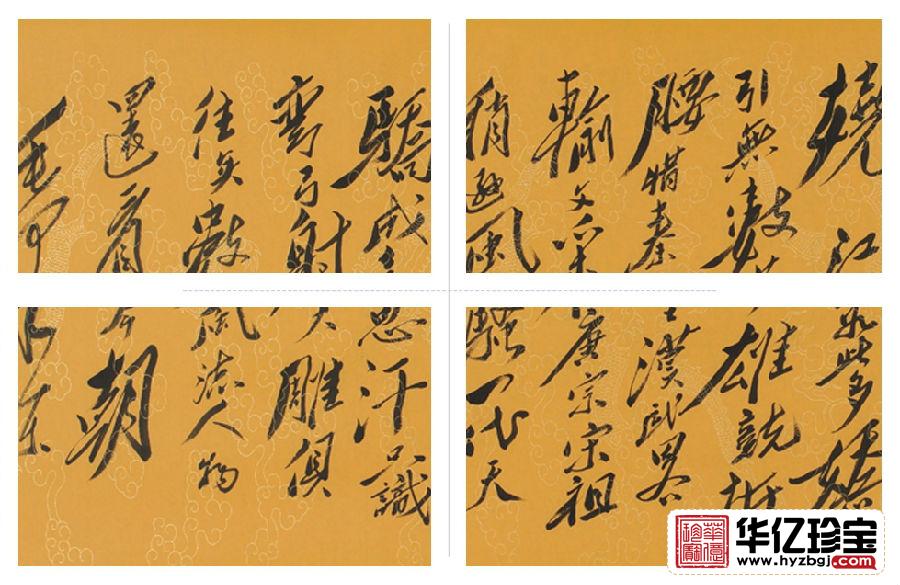 嬈江
如此多嬌
引無數
雄競折
腰惜秦
漢武略
輸文采
唐宗宋祖
稍遜風
騷一代天
驕成
思汗只識
彎弓射
大雕俱
往矣數
風流人物
還看
今朝
毛
东
华亿珍宝
www.hyzbgj.com